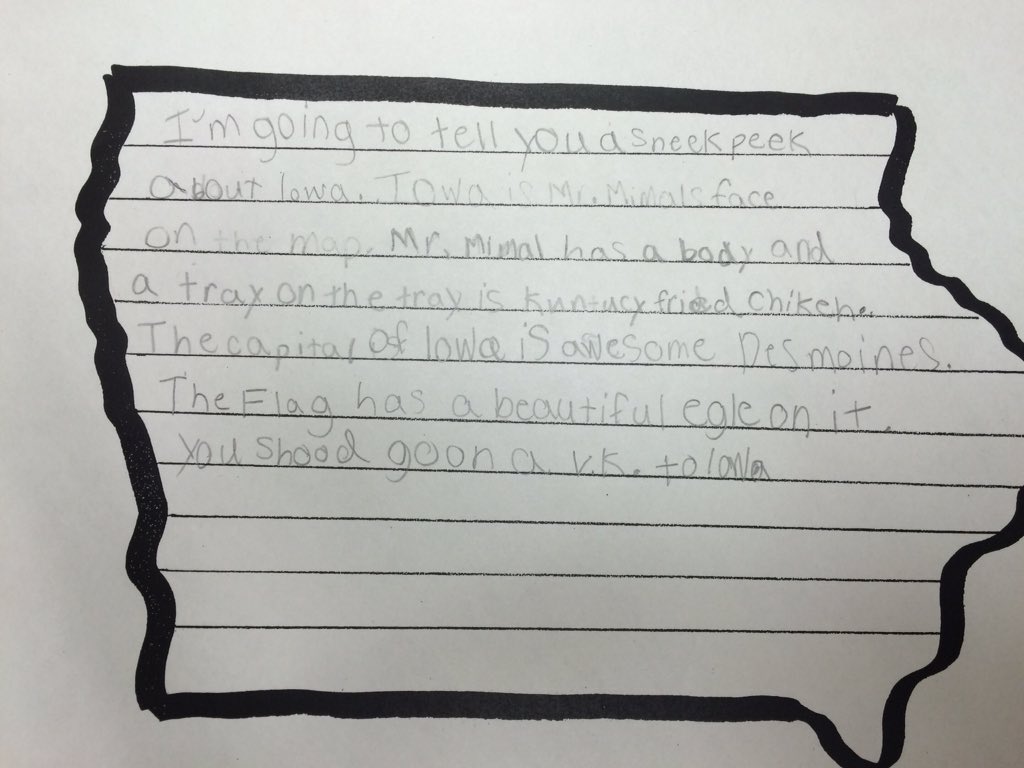 I'm going to tell you a sneek peek
about Iowa. Iowa is Mr. Mimals face
on the map. Mr. Mimal has a body and
a tray on the tray is Kuntucy fried chiken.
The capital Of Iowa is awesome Desmoines.
The Flag has a beautiful egle on it.
You shood go on a v.k. to Iowa